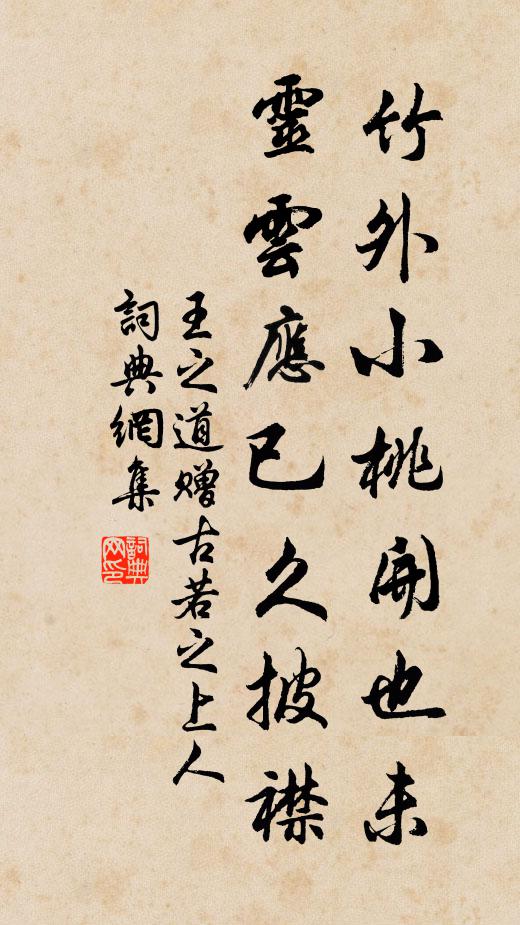 竹外小桃開也未
靈雲應已久披襟
王之道贈古若之上人
詞典網集
詞典网印